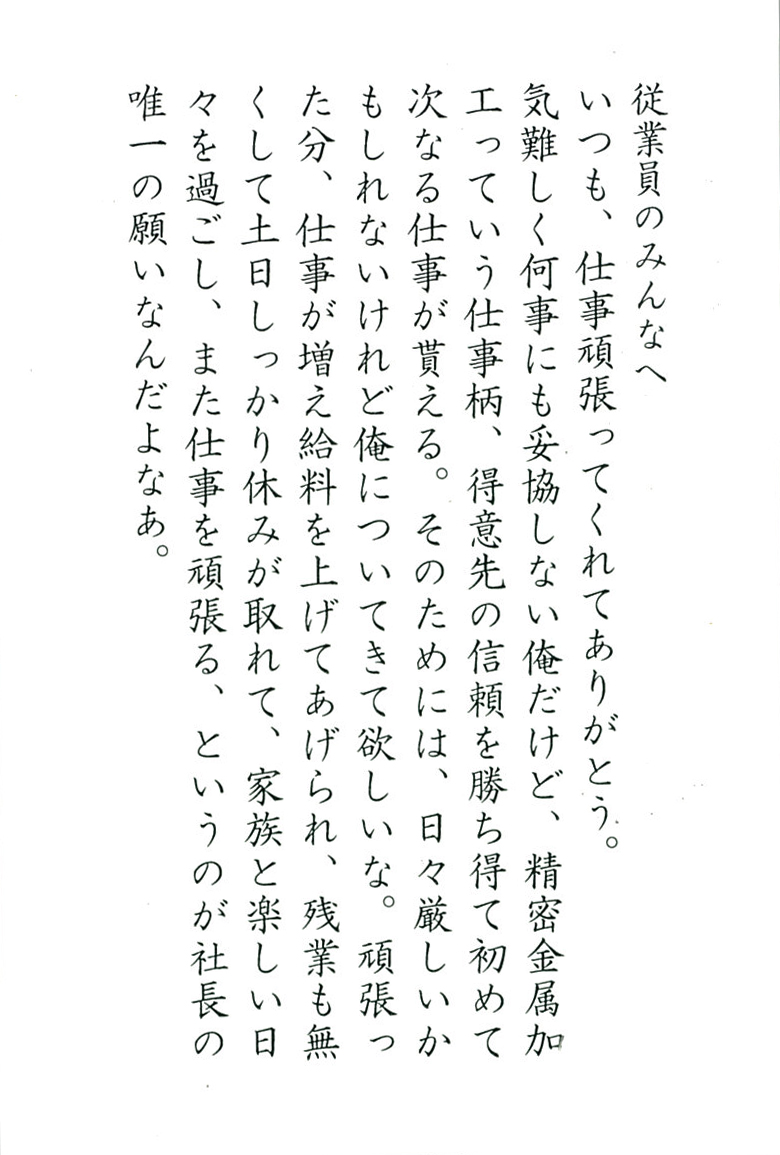 従業員のみんなへ
いつも、仕事頑張ってくれてありがとう。
気難しく何事にも妥協しない俺だけど、精密金属加
工っていう仕事柄、得意先の信頼を勝ち得て初めて
次なる仕事が貰える。そのためには、日々厳しいか
もしれないけれど俺についてきて欲しいな。頑張っ
た分、仕事が増え給料を上げてあげられ、残業も無
くして土日しっかり休みが取れて、家族と楽しい日
々を過ごし、また仕事を頑張る、というのが社長の
唯一の願いなんだよなあ。